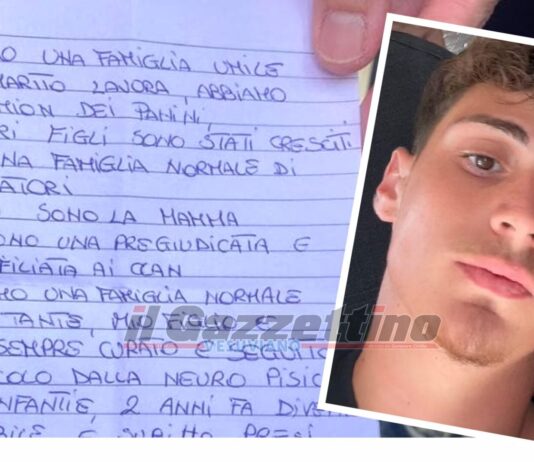 O UNA FAMIGLIA UMILE
MARITO LAVORA, ABBIAMO
MION DEI PANINI,
RI FIGLI SONO STATI CRESCITI
NA FAMIGLIA NORMALE DI
ATORI
SONO LA MAMMA
ONO UNA PREGIUDICATA E
FILIATA AI CLAN
MO UNA FAMIGLIA NORMALE
TANTE, MIO FIGLIO E
il Gazzettino
VESUVIANO
SEMPRE CURATO E SEGUITO
COLO DALLA NEURO PISIC
NFANTIE, 2 ANNI FA DIVE
E SUBITO PRESI